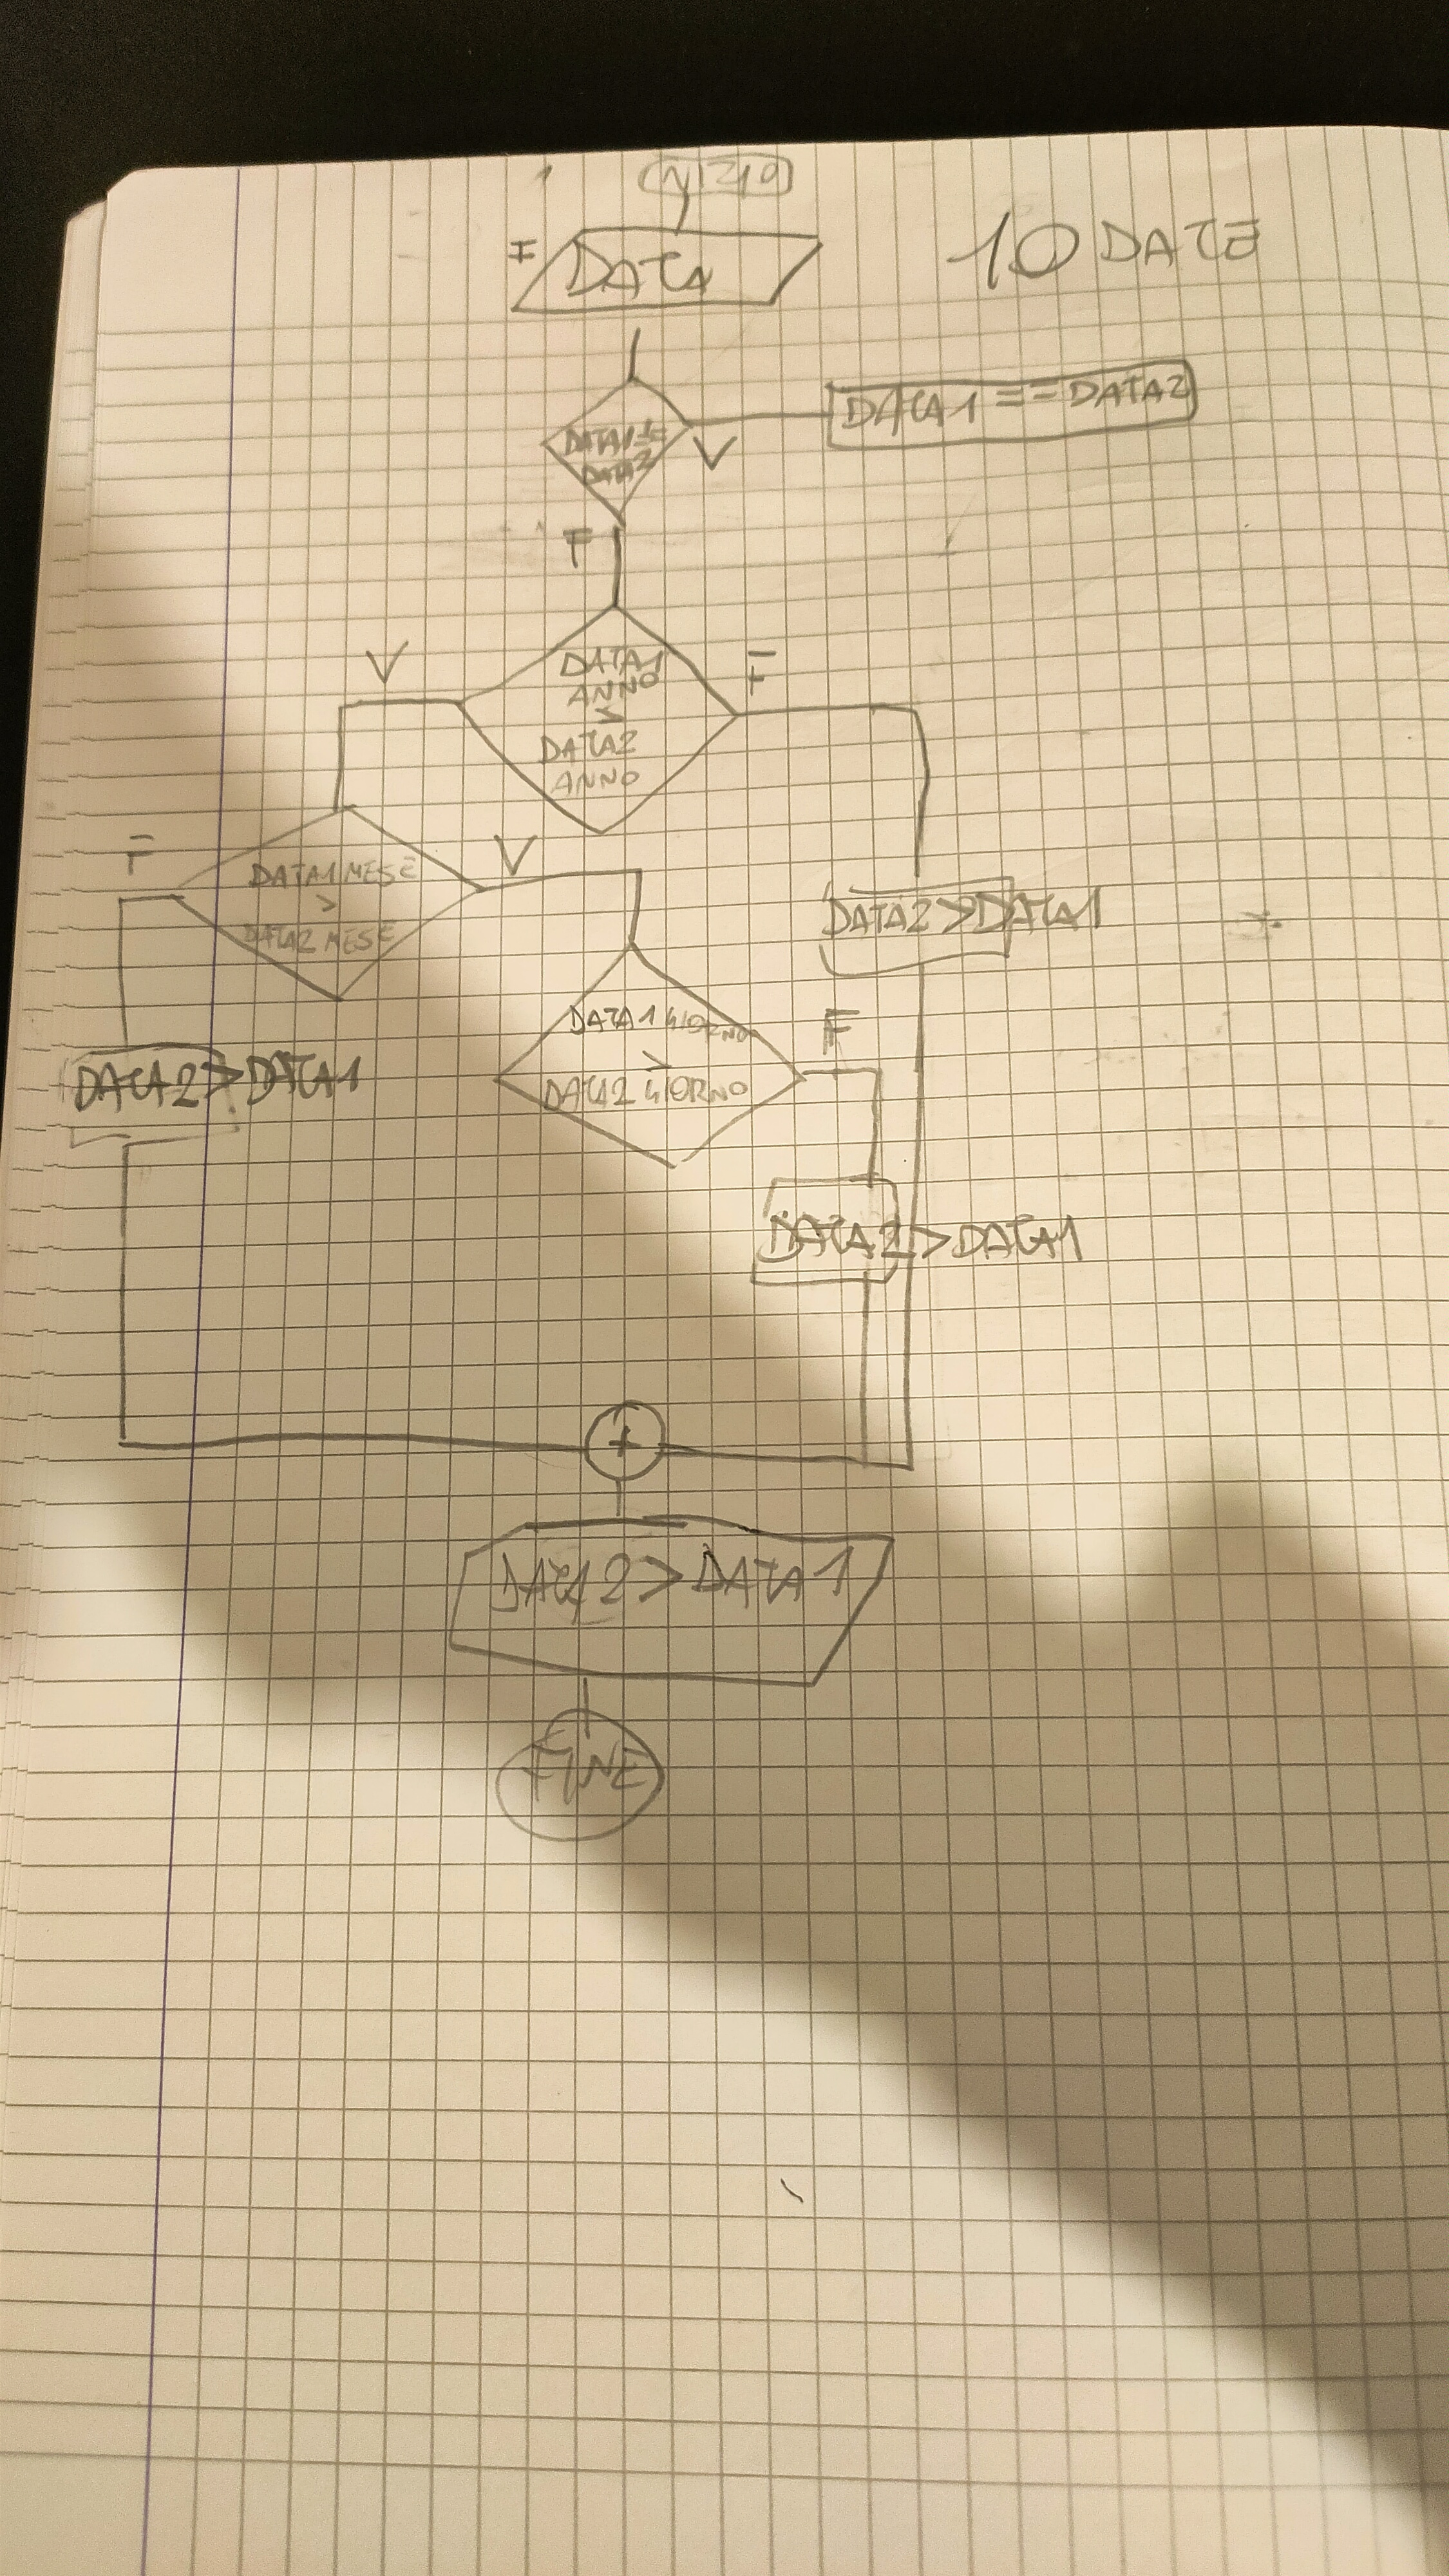 INIZIO
10 DATE
I
DATA
DATA1 == DATA2
DATA1 ==
DATA2
V
F
V
F
DATA1
ANNO
DATA2
ANNO
F
V
DATA1 MESE
>
DATA2 MESE
DATA2 > DATA1
DATA1 GIORNO
>
DATA2 GIORNO
F
DATA2 > DATA1
DATA2 > DATA1
+
DATA2 > DATA1
FINE